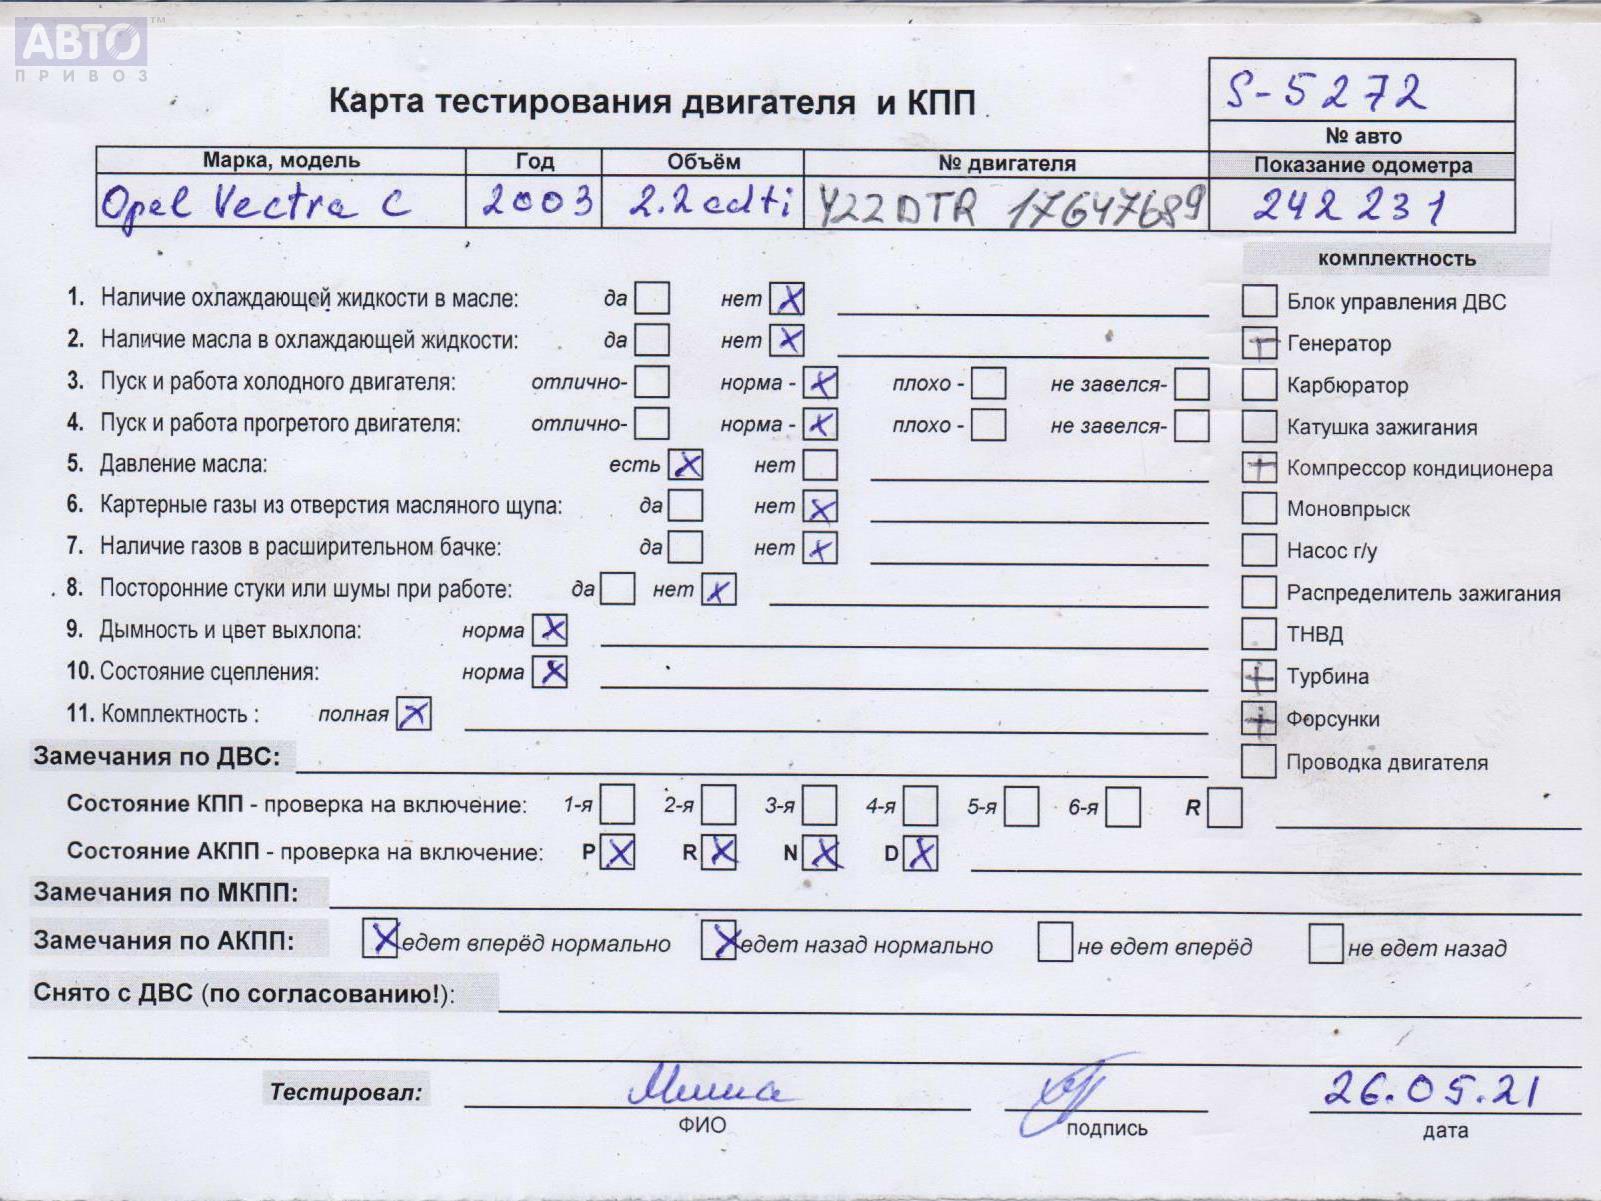 АВТО ™
ПРИВОЗ
Карта тестирования двигателя и КПП
S-5272
№ авто
Марка, модель Год Объём № двигателя Показание одометра
Opel Vectra C 2003 2.2cdti Y22DTR 17647689 242 231
комплектность
1. Наличие охлаждающей жидкости в масле: да нет X
Блок управления ДВС
2. Наличие масла в охлаждающей жидкости: да нет X
+ Генератор
3. Пуск и работа холодного двигателя: отлично- норма - X плохо - не завелся-
Карбюратор
4. Пуск и работа прогретого двигателя: отлично- норма - X плохо - не завелся-
Катушка зажигания
5. Давление масла: есть X нет
+ Компрессор кондиционера
6. Картерные газы из отверстия масляного щупа: да нет X
Моновпрыск
7. Наличие газов в расширительном бачке: да нет X
Насос г/у
8. Посторонние стуки или шумы при работе: да нет X
Распределитель зажигания
9. Дымность и цвет выхлопа: норма X
ТНВД
10. Состояние сцепления: норма X
+ Турбина
11. Комплектность : полная X
+ Форсунки
Замечания по ДВС:
Проводка двигателя
Состояние КПП - проверка на включение: 1-я 2-я 3-я 4-я 5-я 6-я R
Состояние АКПП - проверка на включение: P X R X N X D X
Замечания по МКПП:
Замечания по АКПП: X едет вперёд нормально X едет назад нормально не едет вперёд не едет назад
Снято с ДВС (по согласованию!):
Тестировал: Миша 26.05.21
ФИО подпись дата